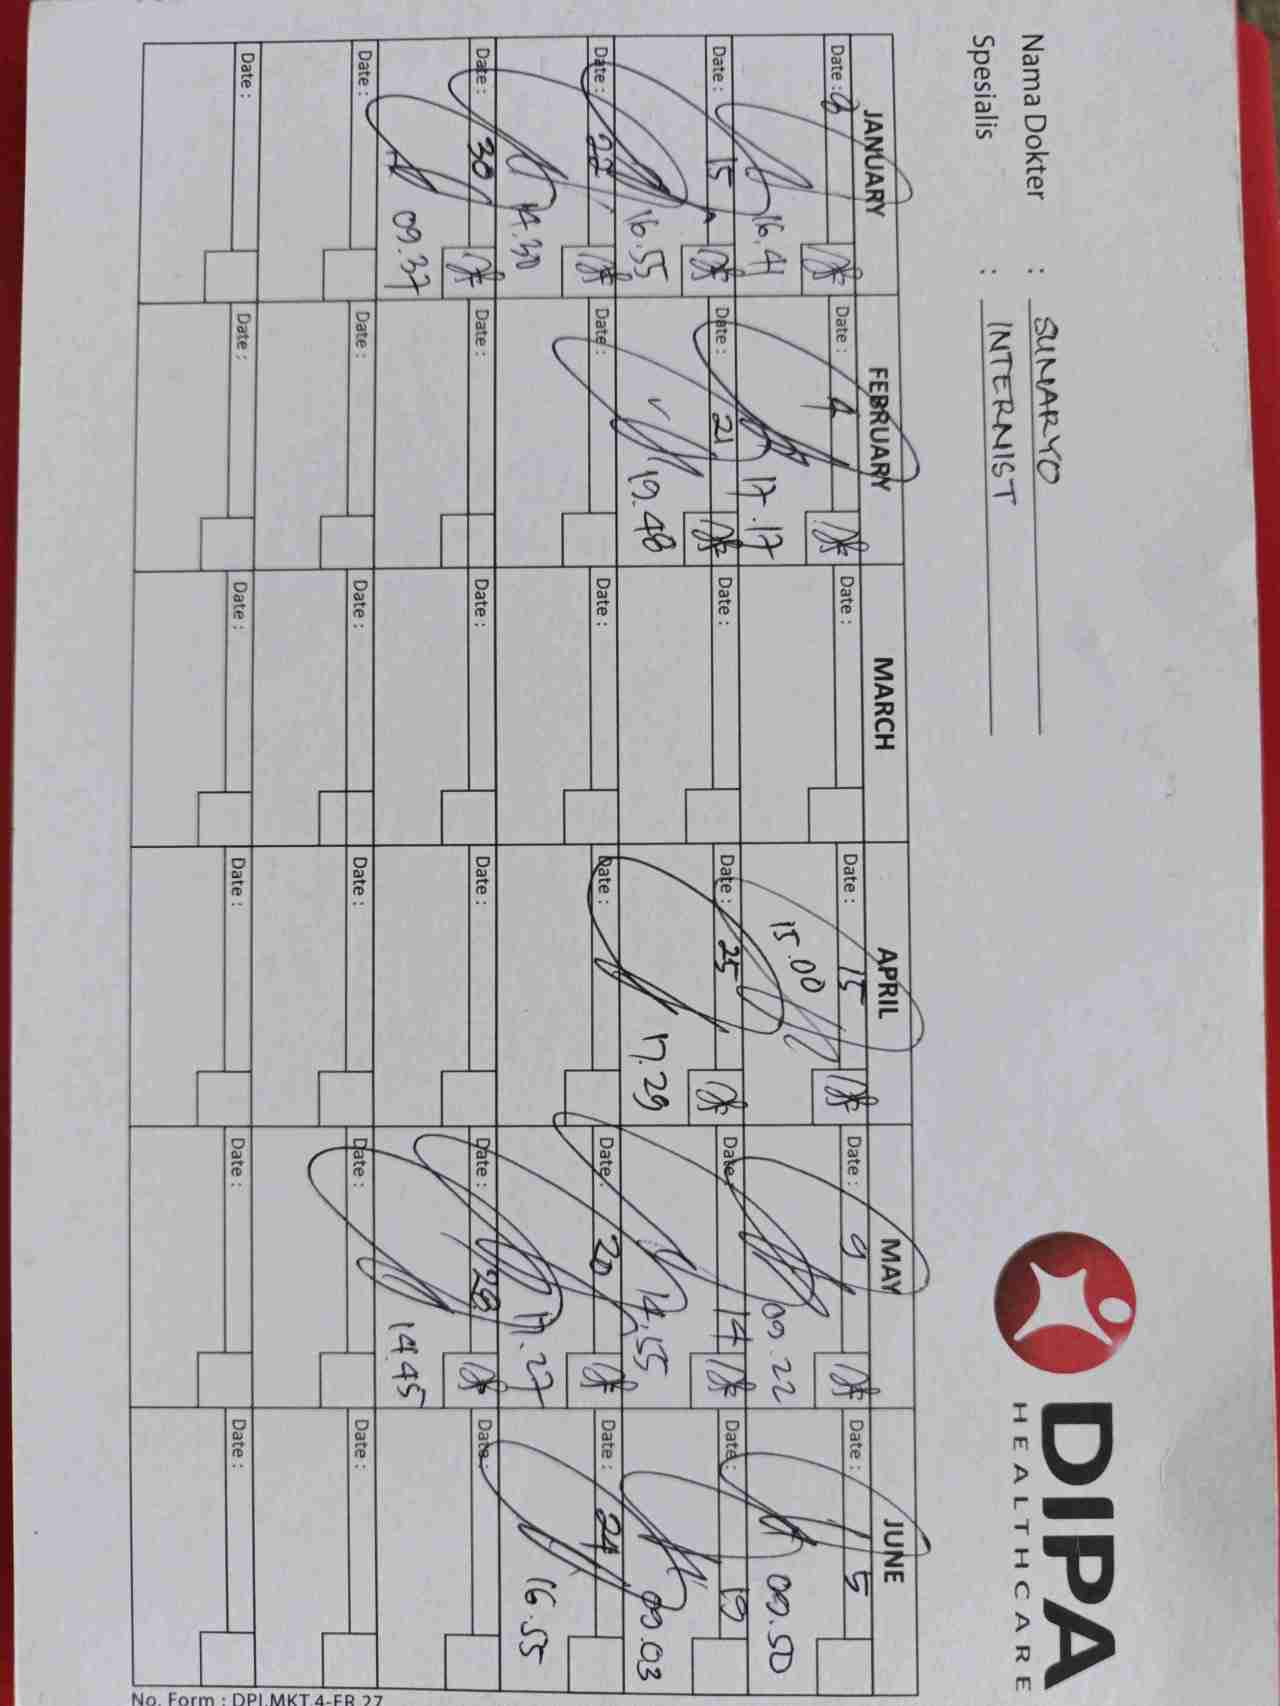 DIPA
HEALTHCARE
Nama Dokter : SUMARYO
Spesialis : INTERNIST
JANUARY FEBRUARY MARCH APRIL MAY JUNE
Date : Date : 4 Date : Date : 15 Date : 9 Date : 5
16.41 17.17 15.00 09.22 09.50
Date : 15 Date : 21 Date : Date : 25 Date : 14 Date : 19
16.55 19.48 17.29 14.55 09.03
Date : 22 Date : Date : Date : Date : 20 Date : 24
14.30 17.27 16.55
Date : 30 Date : Date : Date : Date : 28 Date :
09.37 14.45
Date : Date : Date : Date : Date : Date :
Date : Date : Date : Date : Date : Date :
No. Form : DPI.MKT.4-FR.27